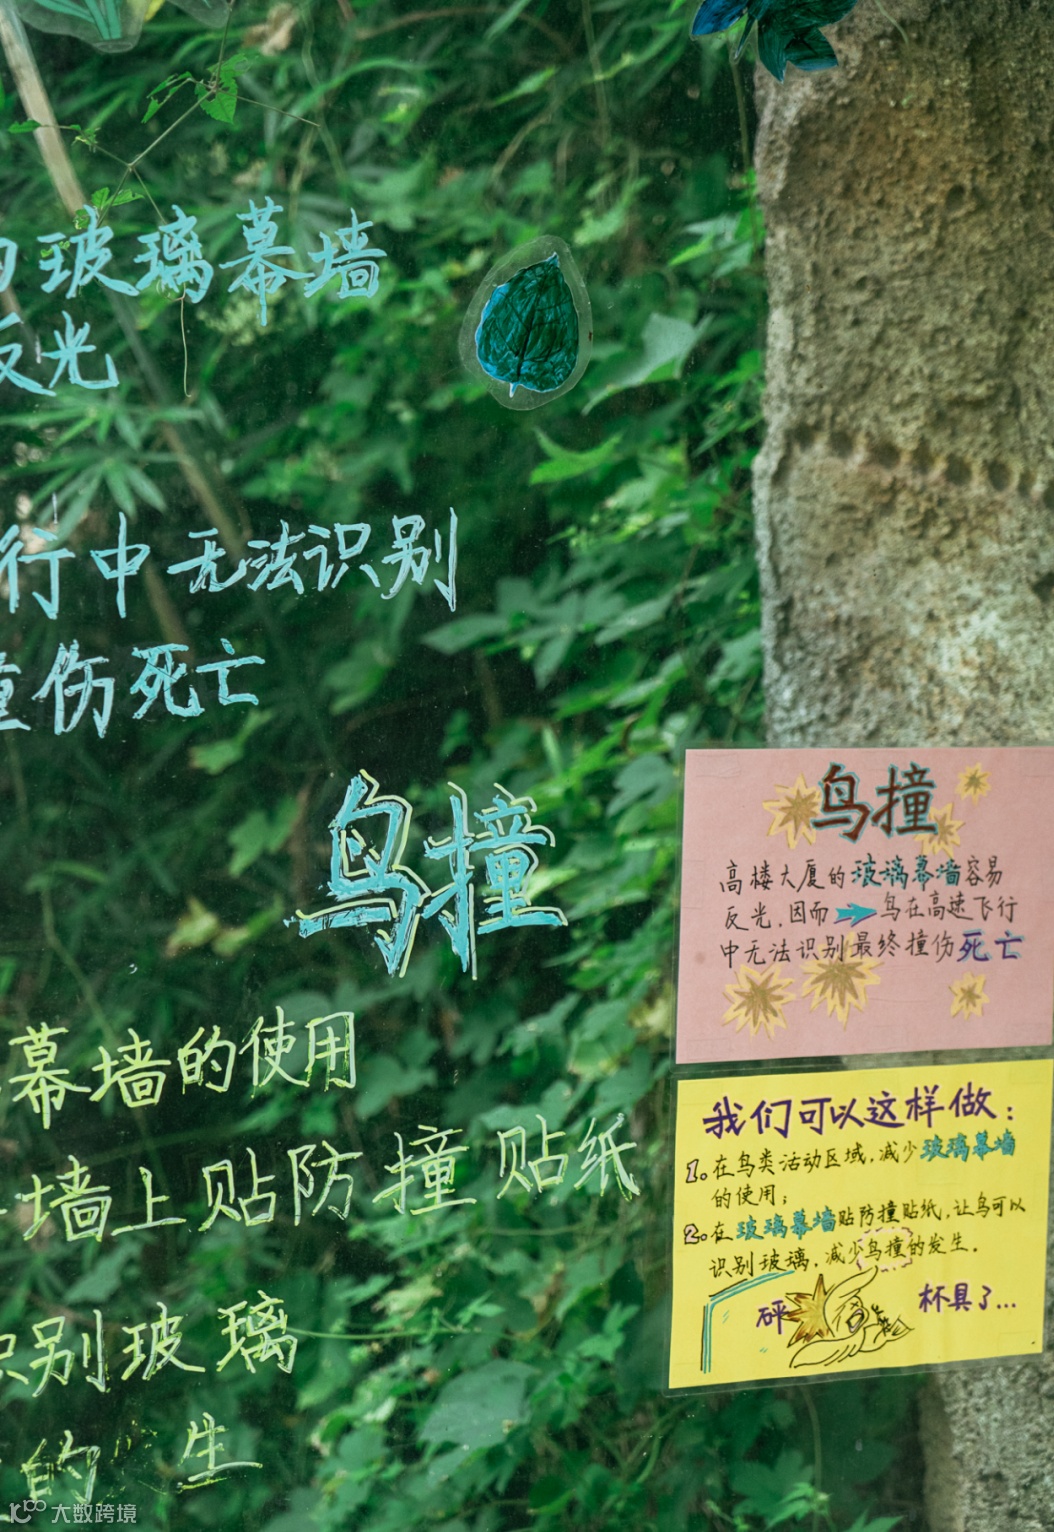 玻璃幕墙
反光
行中无法识别
撞伤死亡
鸟撞
幕墙的使用
墙上贴防撞贴纸
识别玻璃
的 生
鸟撞
高楼大厦的玻璃幕墙容易
反光,因而➡鸟在高速飞行
中无法识别最终撞伤死亡
我们可以这样做:
1.在鸟类活动区域,减少玻璃幕墙
的使用;
2.在玻璃幕墙贴防撞贴纸,让鸟可以
识别玻璃,减少鸟撞的发生。
砰
杯具了...
大数跨境